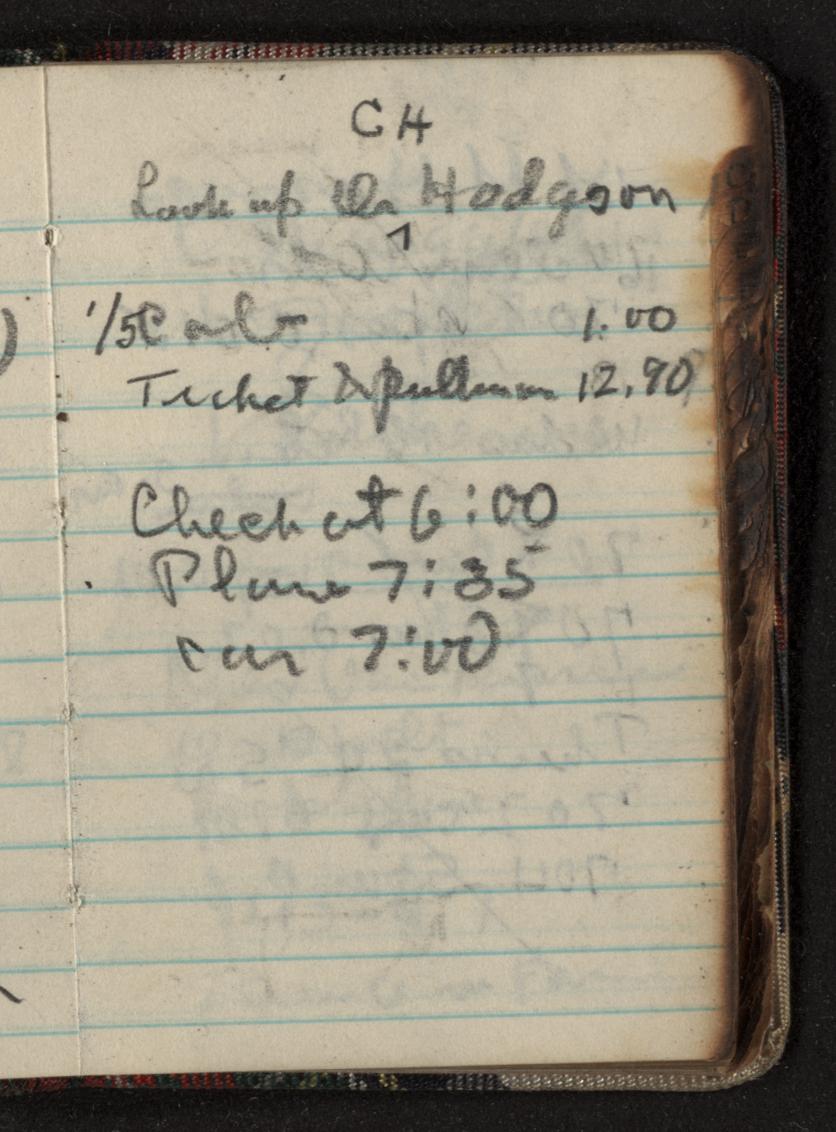 CH
Look up Dr Hodgson
^
1/5 Cab 1.00
Ticket & pullman 12.90
Check at 6:00
Plane 7:35
car 7:00